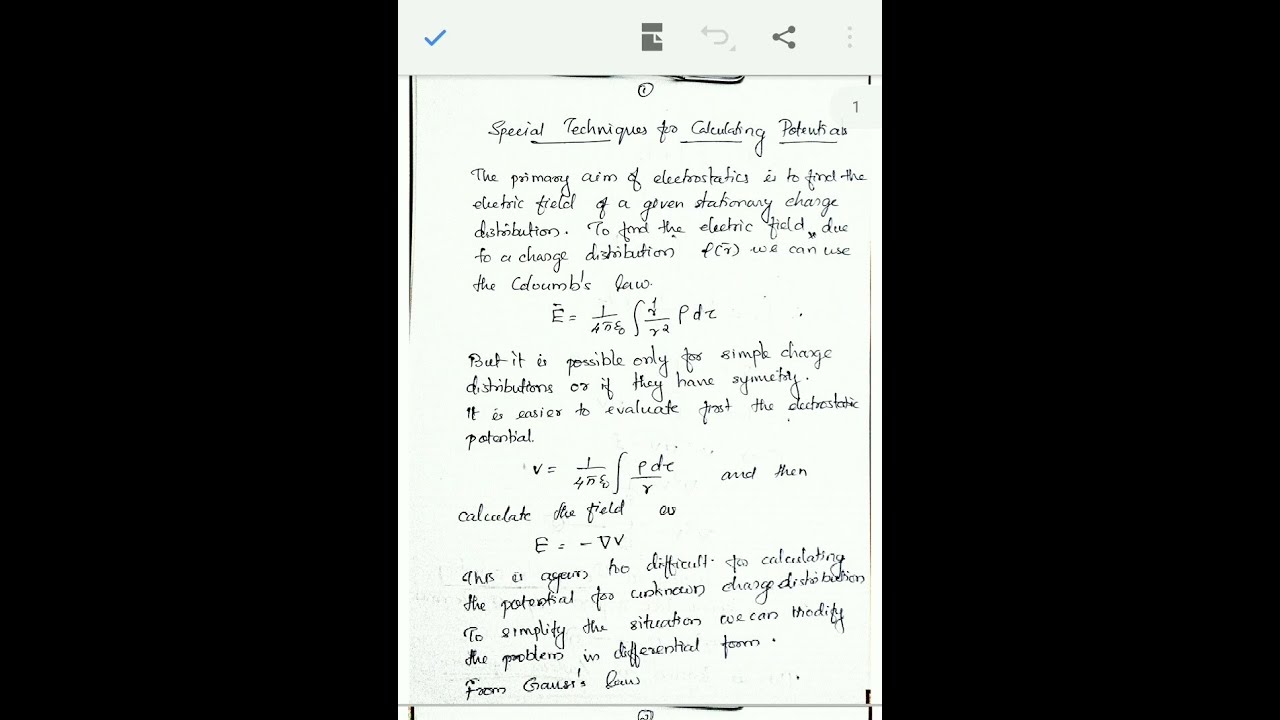 ①
1
Special Techniques for Calculating Potentials
The primary aim of electrostatics is to find the
electric field of a given stationary charge
distribution. To find the electric field, due
to a charge distribution ρ(r̄) we can use
the Coloumb's law.
Ē = 1/4πε₀ ∫ r̂/r² ρdτ
But it is possible only for simple charge
distributions or if they have symmetry.
It is easier to evaluate first the electrostatic
potential.
V = 1/4πε₀ ∫ ρdτ/r and then
calculate the field as
E = -∇V
This is again too difficult for calculating
the potential for unknown charge distribution
To simplify the situation we can modify
the problem in differential form.
From Gauss's law
②